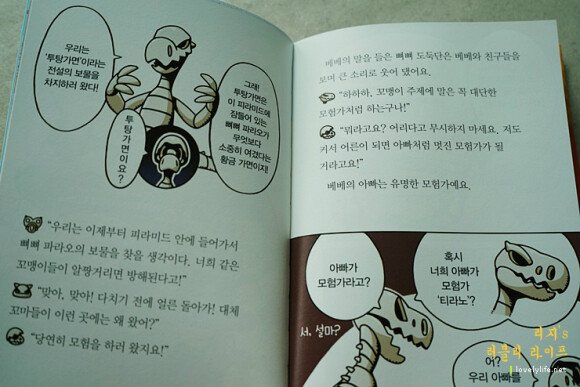 우리는
'투탕가면'이라는
전설의 보물을
차지하러 왔다!
그래!
투탕가면은
이 피라미드에
잠들어 있는
뼈뼈 파라오가
무엇보다
소중히 여겼다는
황금 가면이지!
투탕
가면이요?
"우리는 이제부터 피라미드 안에 들어가서
뼈뼈 파라오의 보물을 찾을 생각이다. 너희 같은
꼬맹이들이 알짱거리면 방해된다고!"
"맞아, 맞아! 다치기 전에 얼른 돌아가! 대체
꼬마들이 이런 곳에는 왜 왔어?"
"당연히 모험을 하러 왔지요!"
베베의 말을 들은 뼈뼈 도둑단은 베베와 친구들을
보며 큰 소리로 웃어 댔어요.
"하하하, 꼬맹이 주제에 말은 꼭 대단한
모험가처럼 하는구나!"
"뭐라고요? 어리다고 무시하지 마세요. 저도
커서 어른이 되면 아빠처럼 멋진 모험가가 될
거라고요!"
베베의 아빠는 유명한 모험가예요.
아빠가
모험가라고?
혹시
너희 아빠가
모험가
'티라노'?
서, 설마?
어?
우리 아빠를
리지s
러블리 라이프
lovelylife.net